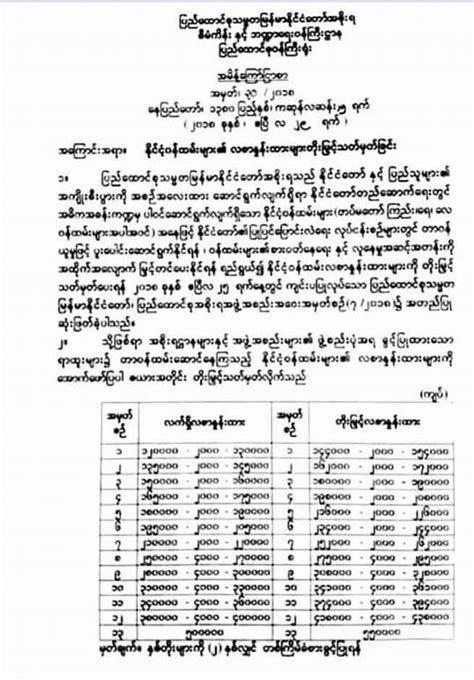 ပြည်ထောင်စုသမ္မတမြန်မာနိုင်ငံတော်အစိုးရ
စီမံကိန်း နှင့် ဘဏ္ဍာရေးဝန်ကြီးဌာန
ပြည်ထောင်စုဝန်ကြီးရုံး
အမိန့်ကြော်ငြာစာ
အမှတ်၊ ၃၀ /၂၀၁၈
နေပြည်တော်၊ ၁၃၈၀ ပြည့်နှစ်၊ ကဆုန်လဆန်း ၁၅ ရက်
( ၂၀၁၈ ခုနှစ် ၊ ဧပြီ လ ၂၉ ရက် )
အကြောင်းအရာ။ နိုင်ငံ့ဝန်ထမ်းများ၏ လစာနှုန်းထားများတိုးမြှင့်သတ်မှတ်ခြင်း
၁။ ပြည်ထောင်စုသမ္မတမြန်မာနိုင်ငံတော်အစိုးရသည် နိုင်ငံတော် နှင့် ပြည်သူများ၏
အကျိုးစီးပွားကို အစဉ်အလေးထား ဆောင်ရွက်လျက်ရှိရာ နိုင်ငံတော်တည်ဆောက်ရေးတွင်
အဓိကအခန်းကဏ္ဍမှ ပါဝင်ဆောင်ရွက်လျက်ရှိသော နိုင်ငံ့ဝန်ထမ်းများ (တပ်မတော် ကြည်း၊ရေ၊ လေ
ဝန်ထမ်းများအပါအဝင်) အနေဖြင့် နိုင်ငံတော်၏ပြုပြင်ပြောင်းလဲရေး လုပ်ငန်းစဉ်များတွင် တာဝန်
ယူမှုဖြင့် ပူးပေါင်းဆောင်ရွက်နိုင်ရန် ၊ ဝန်ထမ်းများ၏စားဝတ်နေရေး နှင့် လူနေမှုအဆင့်အတန်းကို
အထိုက်အလျောက် မြှင့်တင်ပေးနိုင်ရန် ရည်ရွယ်၍ နိုင်ငံ့ဝန်ထမ်းလစာနှုန်းထားများကို တိုးမြှင့်
သတ်မှတ်ပေးရန် ၂၀၁၈ ခုနှစ် ဧပြီလ ၂၅ ရက်နေ့တွင် ကျင်းပပြုလုပ်သော ပြည်ထောင်စုသမ္မတ
မြန်မာနိုင်ငံတော်၊ ပြည်ထောင်စုအစိုးရအဖွဲ့အစည်းအဝေးအမှတ်စဉ် (၇ /၂၀၁၈)၌ အတည်ပြု
ဆုံးဖြတ်ခဲ့ပါသည်။
၂။ သို့ဖြစ်ရာ အစိုးရဌာနများနှင့် အဖွဲ့အစည်းများ၏ ဖွဲ့စည်းပုံအရ ခွင့်ပြုထားသော
ရာထူးများ၌ တာဝန်ထမ်းဆောင်နေကြသည့် နိုင်ငံ့ဝန်ထမ်းများ၏ လစာနှုန်းထားများကို
အောက်ဖော်ပြပါ ဇယားအတိုင်း တိုးမြှင့်သတ်မှတ်လိုက်သည်
(ကျပ်)
အမှတ်စဉ် လက်ရှိလစာနှုန်းထား အမှတ်စဉ် တိုးမြှင့်လစာနှုန်းထား
၁ ၁၂၀၀၀၀ - ၂၀၀၀ - ၁၃၀၀၀၀ ၁ ၁၄၄၀၀၀ - ၂၀၀၀ - ၁၅၄၀၀၀
၂ ၁၃၅၀၀၀ - ၂၀၀၀ - ၁၄၅၀၀၀ ၂ ၁၆၂၀၀၀ - ၂၀၀၀ - ၁၇၂၀၀၀
၃ ၁၅၀၀၀၀ - ၂၀၀၀ - ၁၆၀၀၀၀ ၃ ၁၈၀၀၀၀ - ၂၀၀၀ - ၁၉၀၀၀၀
၄ ၁၆၅၀၀၀ - ၂၀၀၀ - ၁၇၅၀၀၀ ၄ ၁၉၈၀၀၀ - ၂၀၀၀ - ၂၀၈၀၀၀
၅ ၁၈၀၀၀၀ - ၂၀၀၀ - ၁၉၀၀၀၀ ၅ ၂၁၆၀၀၀ - ၂၀၀၀ - ၂၂၆၀၀၀
၆ ၁၉၅၀၀၀ - ၂၀၀၀ - ၂၀၅၀၀၀ ၆ ၂၃၄၀၀၀ - ၂၀၀၀ - ၂၄၄၀၀၀
၇ ၂၁၀၀၀၀ - ၂၀၀၀ - ၂၂၀၀၀၀ ၇ ၂၅၂၀၀၀ - ၂၀၀၀ - ၂၆၂၀၀၀
၈ ၂၅၀၀၀၀ - ၄၀၀၀ - ၂၇၀၀၀၀ ၈ ၂၇၅၀၀၀ - ၄၀၀၀ - ၂၉၅၀၀၀
၉ ၂၈၀၀၀၀ - ၄၀၀၀ - ၃၀၀၀၀၀ ၉ ၃၀၈၀၀၀ - ၄၀၀၀ - ၃၂၈၀၀၀
၁၀ ၃၁၀၀၀၀ - ၄၀၀၀ - ၃၃၀၀၀၀ ၁၀ ၃၄၁၀၀၀ - ၄၀၀၀ - ၃၆၁၀၀၀
၁၁ ၃၄၀၀၀၀ - ၄၀၀၀ - ၃၆၀၀၀၀ ၁၁ ၃၇၄၀၀၀ - ၄၀၀၀ - ၃၉၄၀၀၀
၁၂ ၃၈၀၀၀၀ - ၄၀၀၀ - ၄၀၀၀၀၀ ၁၂ ၄၁၈၀၀၀ - ၄၀၀၀ - ၄၃၈၀၀၀
၁၃ ၅၀၀၀၀၀ ၁၃ ၅၅၀၀၀၀
မှတ်ချက်။ နှစ်တိုးများကို (၂) နှစ်လျှင် တစ်ကြိမ်ခံစားခွင့်ပြုရန်